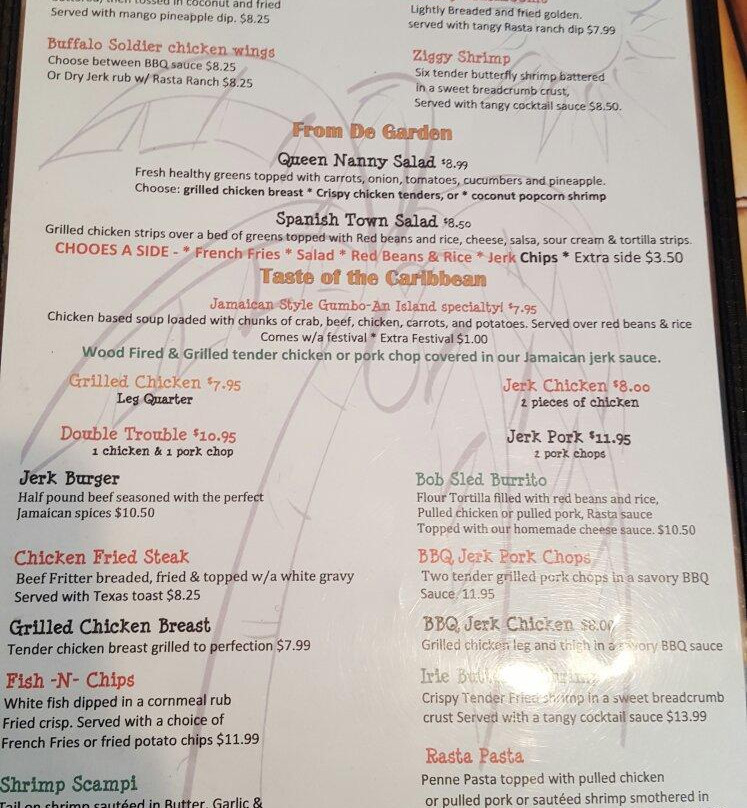 then tossed in coconut and fried
Served with mango pineapple dip. $8.25
Lightly Breaded and fried golden.
served with tangy Rasta ranch dip $7.99
Buffalo Soldier chicken wings
Choose between BBQ sauce $8.25
Or Dry Jerk rub w/ Rasta Ranch $8.25
Ziggy Shrimp
Six tender butterfly shrimp battered
in a sweet breadcrumb crust,
Served with tangy cocktail sauce $8.50.
From De Garden
Queen Nanny Salad $8.99
Fresh healthy greens topped with carrots, onion, tomatoes, cucumbers and pineapple.
Choose: grilled chicken breast * Crispy chicken tenders, or * coconut popcorn shrimp
Spanish Town Salad $8.50
Grilled chicken strips over a bed of greens topped with Red beans and rice, cheese, salsa, sour cream & tortilla strips.
CHOOES A SIDE - * French Fries * Salad * Red Beans & Rice * Jerk Chips * Extra side $3.50
Taste of the Caribbean
Jamaican Style Gumbo-An Island specialty! $7.95
Chicken based soup loaded with chunks of crab, beef, chicken, carrots, and potatoes. Served over red beans & rice
Comes w/a festival * Extra Festival $1.00
Wood Fired & Grilled tender chicken or pork chop covered in our Jamaican jerk sauce.
Grilled Chicken $7.95
Leg Quarter
Jerk Chicken $8.00
2 pieces of chicken
Double Trouble $10.95
1 chicken & 1 pork chop
Jerk Pork $11.95
2 pork chops
Jerk Burger
Half pound beef seasoned with the perfect
Jamaican spices $10.50
Bob Sled Burrito
Flour Tortilla filled with red beans and rice,
Pulled chicken or pulled pork, Rasta sauce
Topped with our homemade cheese sauce. $10.50
Chicken Fried Steak
Beef Fritter breaded, fried & topped w/a white gravy
Served with Texas toast $8.25
BBQ Jerk Pork Chops
Two tender grilled pork chops in a savory BBQ
Sauce. 11.95
Grilled Chicken Breast
Tender chicken breast grilled to perfection $7.99
BBQ Jerk Chicken $8.00
Grilled chicken leg and thigh in a savory BBQ sauce
Fish -N- Chips
White fish dipped in a cornmeal rub
Fried crisp. Served with a choice of
French Fries or fried potato chips $11.99
Irie
Crispy Tender Fried shrimp in a sweet breadcrumb
crust Served with a tangy cocktail sauce $13.99
Shrimp Scampi
Tail on shrimp sautéed in Butter, Garlic &
Rasta Pasta
Penne Pasta topped with pulled chicken
or pulled pork or sautéed shrimp smothered in